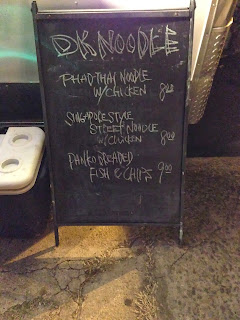 DK NOODLE
PHAD THAI NOODLE
W/CHICKEN 8.00
SINGAPORE STYLE
STREET NOODLE
W/CHICKEN 8.00
PANKO BREADED
FISH & CHIPS 9.00